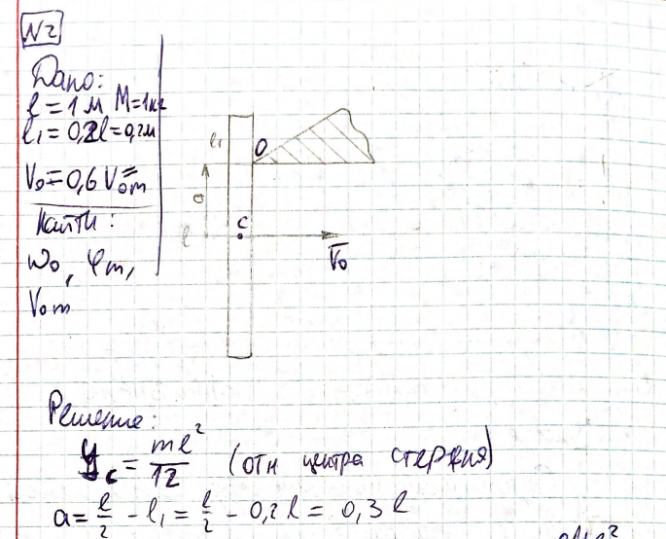 N2
Дано:
l = 1 м M=1кг
l₁ = 0,2l = 0,2м
V₀ = 0,6 V₀m =
Найти:
ω₀, φm,
V₀m
l₁
O
a
l
C
V̅₀
Решение:
Jc = ml²/12 (отн центра стержня)
a = l/2 - l₁ = l/2 - 0,2 l = 0,3 l